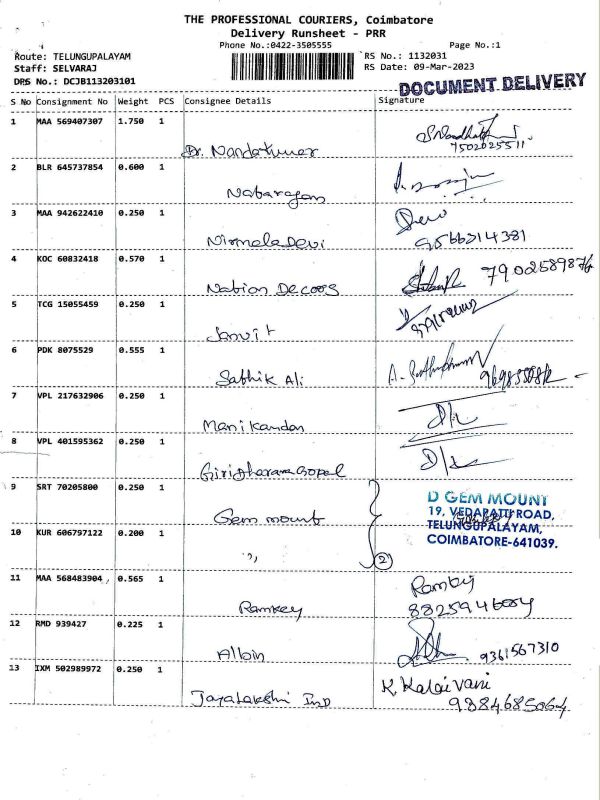 THE PROFESSIONAL COURIERS, Coimbatore
Delivery Runsheet - PRR
Phone No.:0422-3505555
Page No.:1
Route: TELUNGUPALAYAM
RS No.: 1132031
Staff: SELVARAJ
RS Date: 09-Mar-2023
DRS No.: DCJB113203101
DOCUMENT DELIVERY
S No Consignment No Weight PCS Consignee Details Signature
1 MAA 569407307 1.750 1
Dr. Nandakumar
7502025511
2 BLR 645737854 0.600 1
Nabarajan
3 MAA 942622410 0.250 1
Nirmela Devi
9566314381
4 KOC 60832418 0.570 1
Nation Decors
7902589876
5 TCG 15055459 0.250 1
Janvit
6 PDK 8075529 0.555 1
Sathik Ali
7 VPL 217632906 0.250 1
Manikandan
8 VPL 401595362 0.250 1
Giridharana Gopal
9 SRT 70205800 0.250 1
Gem mount
D GEM MOUNT
19, VEDAPATTI ROAD,
TELUNGUPALAYAM,
COIMBATORE-641039.
10 KUR 606797122 0.200 1
,, 2
11 MAA 568483904 0.565 1
Ramkey
8825946004
12 RMD 939427 0.225 1
Albin
9361567310
13 IXM 502989972 0.250 1
Jayalakshi Ind
K. Kalaivani
9384685064